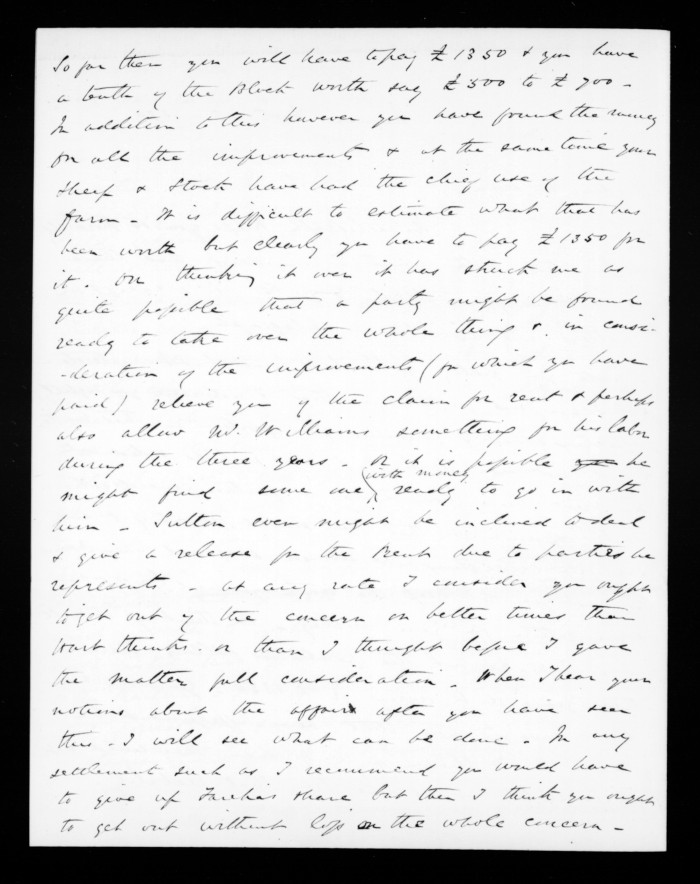 So far then you will have to pay £1350 & you have
a tenth of the Block worth say £500 to £700 -
In addition to this however you have found the money
for all the improvements & at the same time your
sheep & stock have had the chief use of the
farm - It is difficult to estimate what that has
been worth but clearly you have to pay £1350 for
it. On thinking it over it has struck me as
quite possible that a party might be found
ready to take over the whole thing & in consi-
-deration of the improvements (for which you have
paid) relieve you of the claim for rent & perhaps
also allow W. Williams something for his labor
during the three years - or it is possible he
might find some one (with money) ready to go in with
him - Sutton even might be inclined to deal
& give a release for the Rent due to parties he
represents - at any rate I consider you ought
to get out of the concern on better times than
thinks - or than I thought before I gave
the matter full consideration. When I hear your
notions about the affair after you have seen
this - I will see what can be done. In any
settlement such as I recommend you would have
to give up share but then I think you ought
to get out without loss on the whole concern -